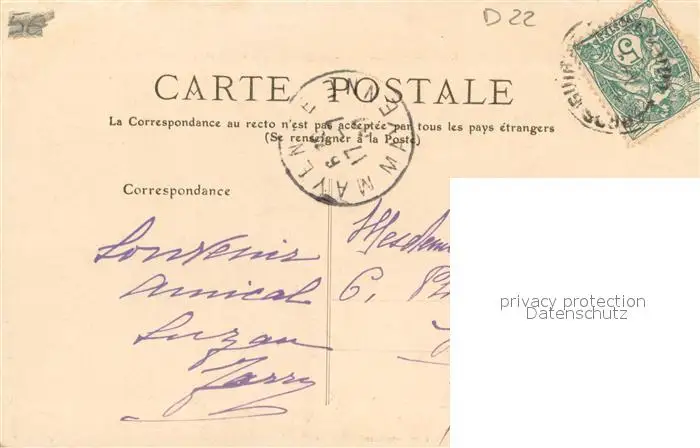 D 22
CARTE POSTALE
La Correspondance au recto n'est pas acceptée par tous les pays étrangers
(Se renseigner à la Poste)
MAYENNE
MAYENNE
5
Correspondance
Souvenir
amical
Suzan
Jarry
Mesdem
6, 
privacy protection
Datenschutz